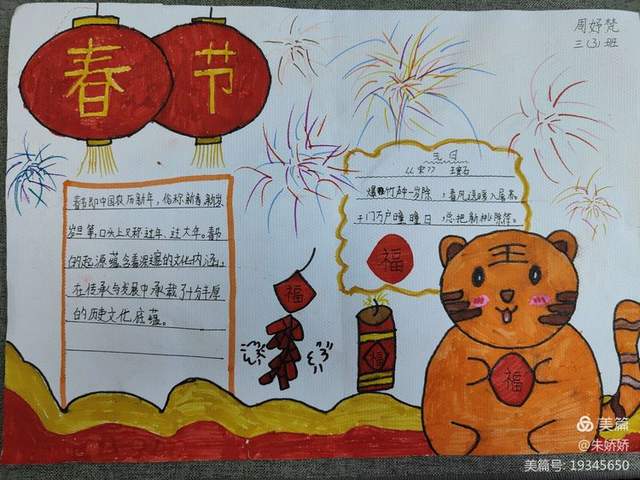 春节
周妤梵
三(3)班
春节即中国农历新年，俗称新春、新岁
岁旦等，口头上又称过年、过大年。春节
的起源蕴含着深邃的文化内涵，
在传承与发展中承载了十分丰厚
的历史文化底蕴。
元日
《宋》 王安石
爆竹声中一岁除，春风送暖入屠苏。
千门万户曈曈日，总把新桃换旧符。
福
福
福
王
福
美篇
@朱娇娇
美篇号: 19345650